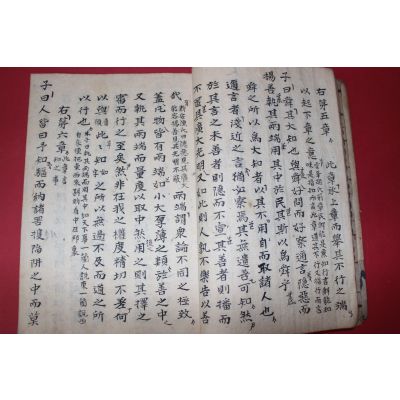 右第五章 此章承上章而擧其不行之端
以起下章之意
子曰舜其大知也與舜好問而好察邇言隱惡而
揚善執其兩端用其中於民其斯以爲舜乎
舜之所以爲大知者以其不自用而取諸人也
邇言者淺近之言猶必察焉其無遺善可知然
於其言之未善者則隱而不宣其善者則播而
不匿其廣大光明又如此則人孰不樂告以善
哉 兩端謂衆論不同之極致
盖凡物皆有兩端如小大厚薄之類於善之中
又執其兩端而量度以取中然後用之則其擇之
審而行之至矣然非在我之權度精切不差何
以與此此知之所以無過不及而道之所
以行也
右第六章
子曰人皆曰予知驅而納諸罟擭陷阱之中而莫